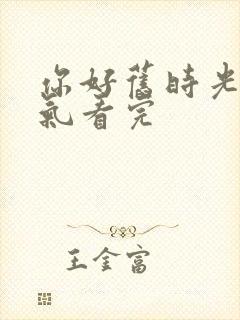 你好舊時光
氣看完
王金富